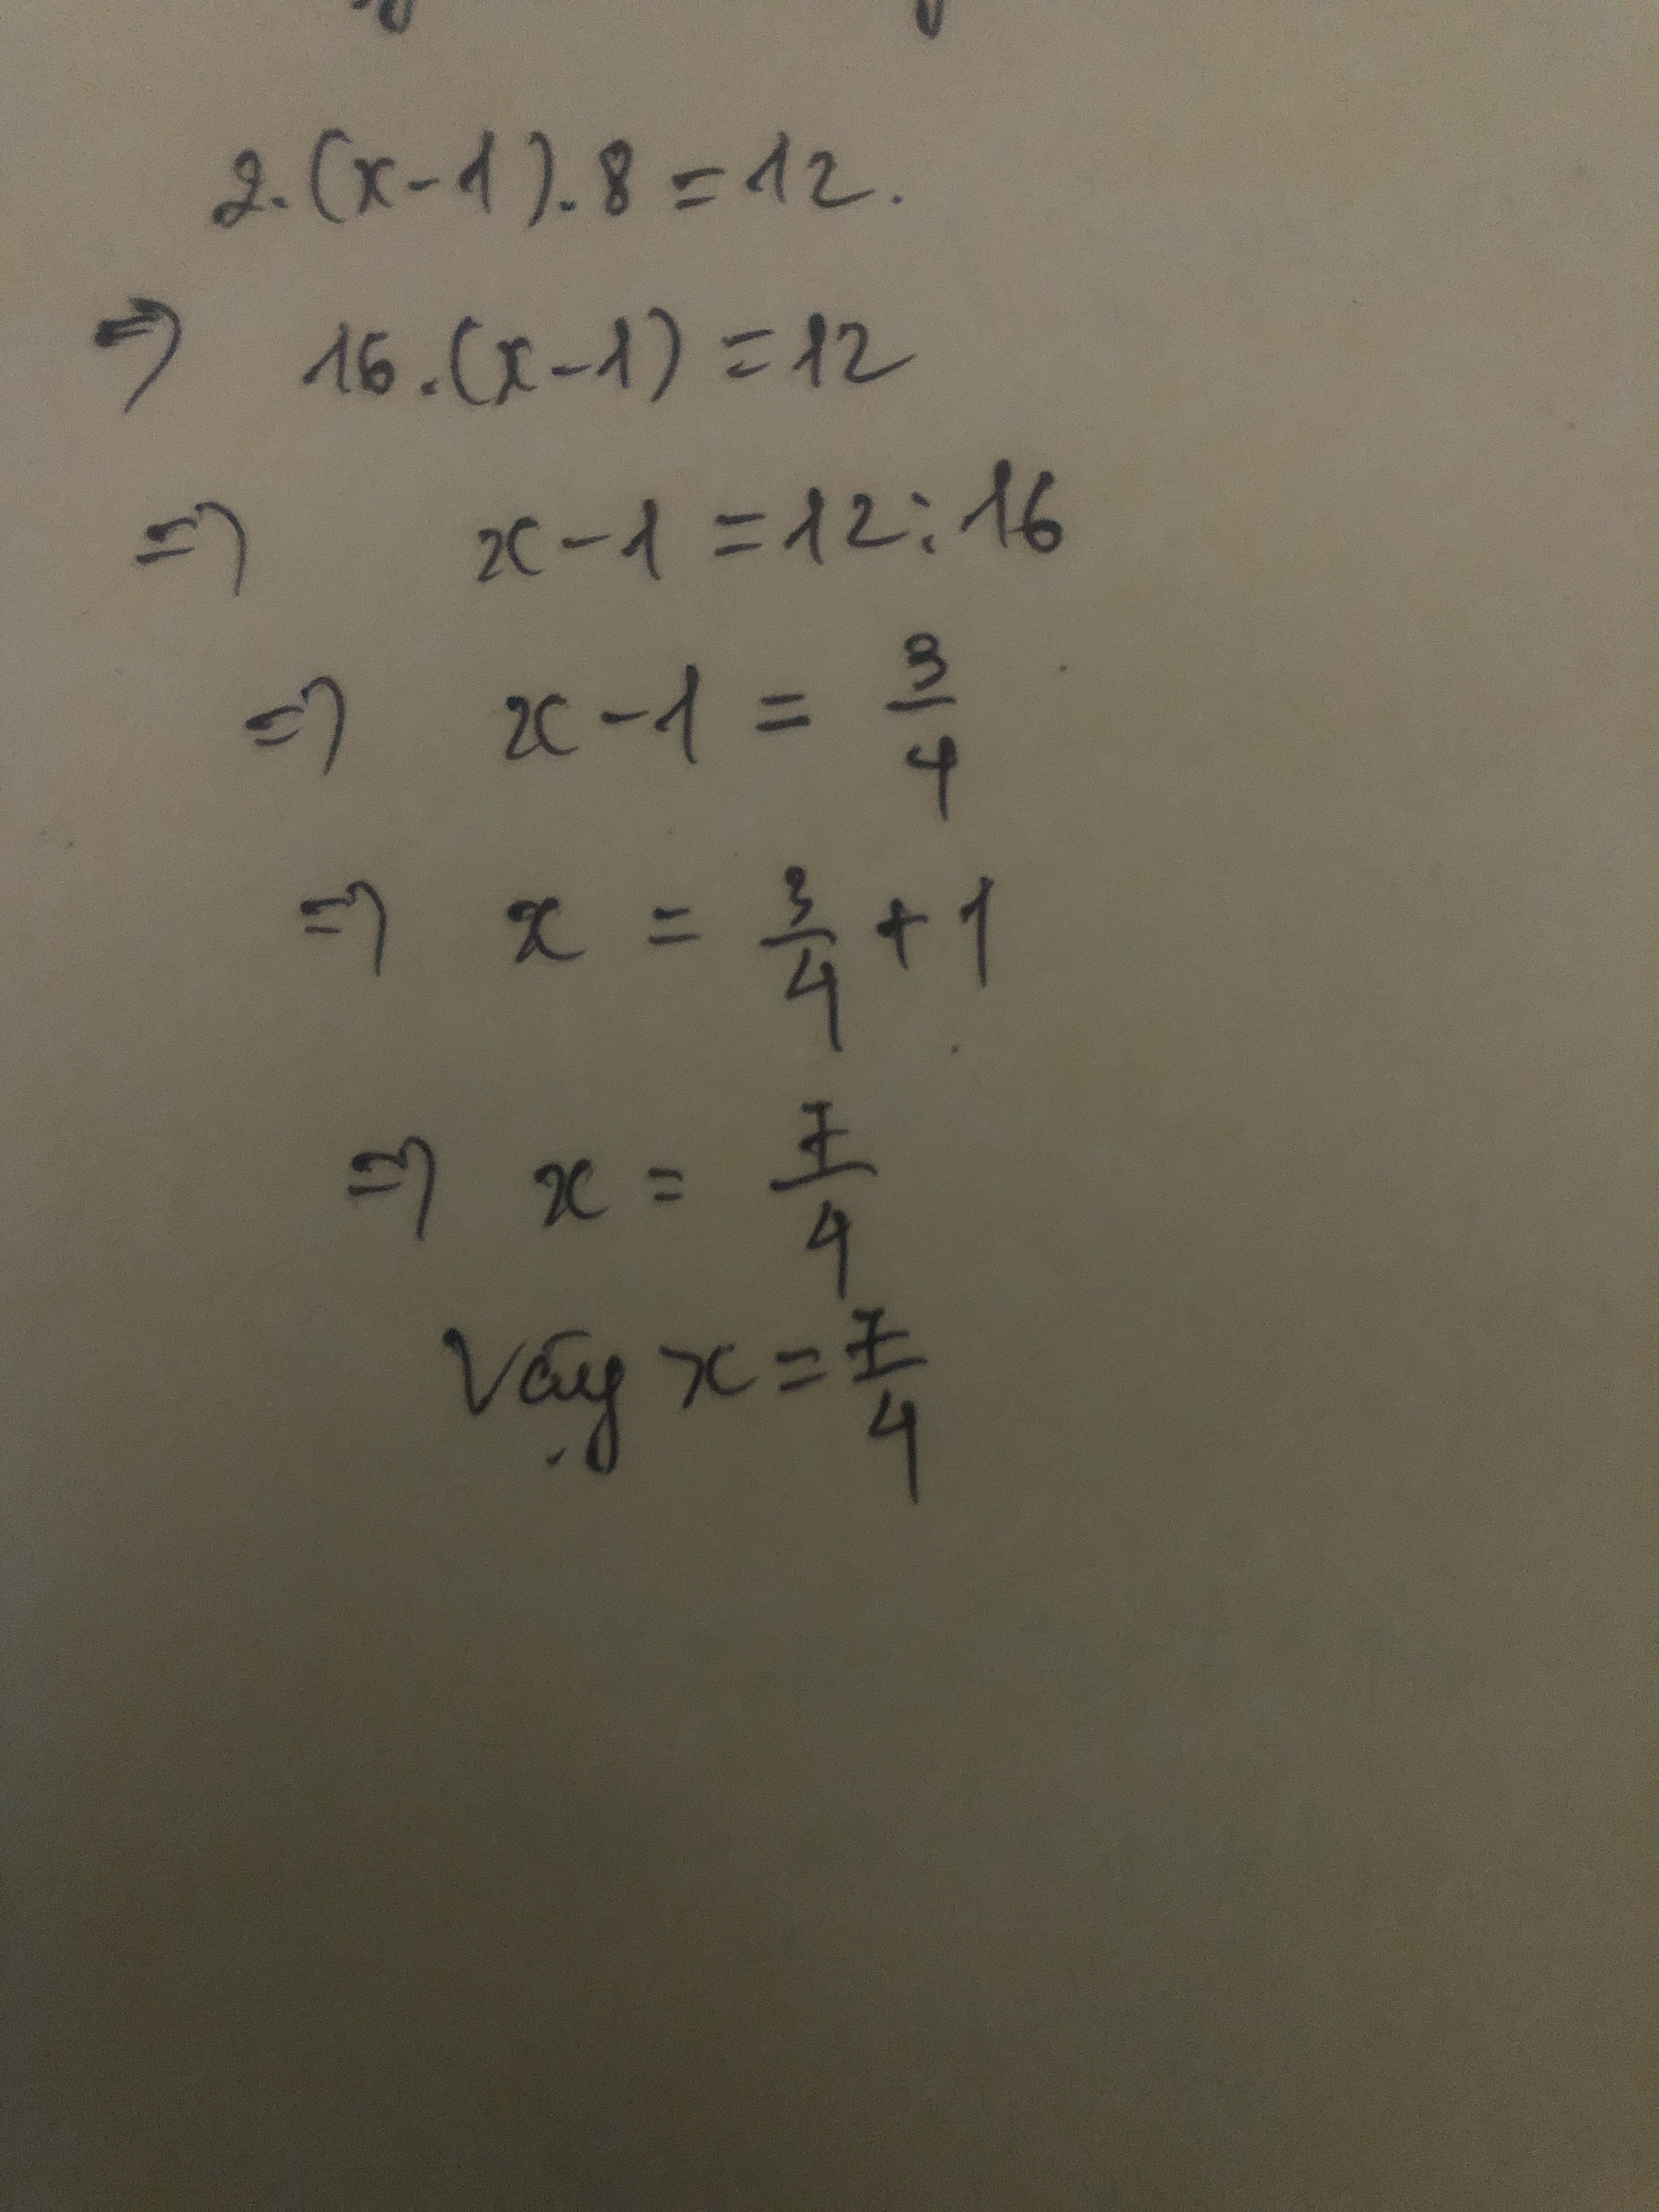 2.(x-1).8=12.
=> 16.(x-1)=12
=> x-1=12:16
=> x-1=3/4
=> x=3/4+1
=> x=7/4
Vậy x=7/4